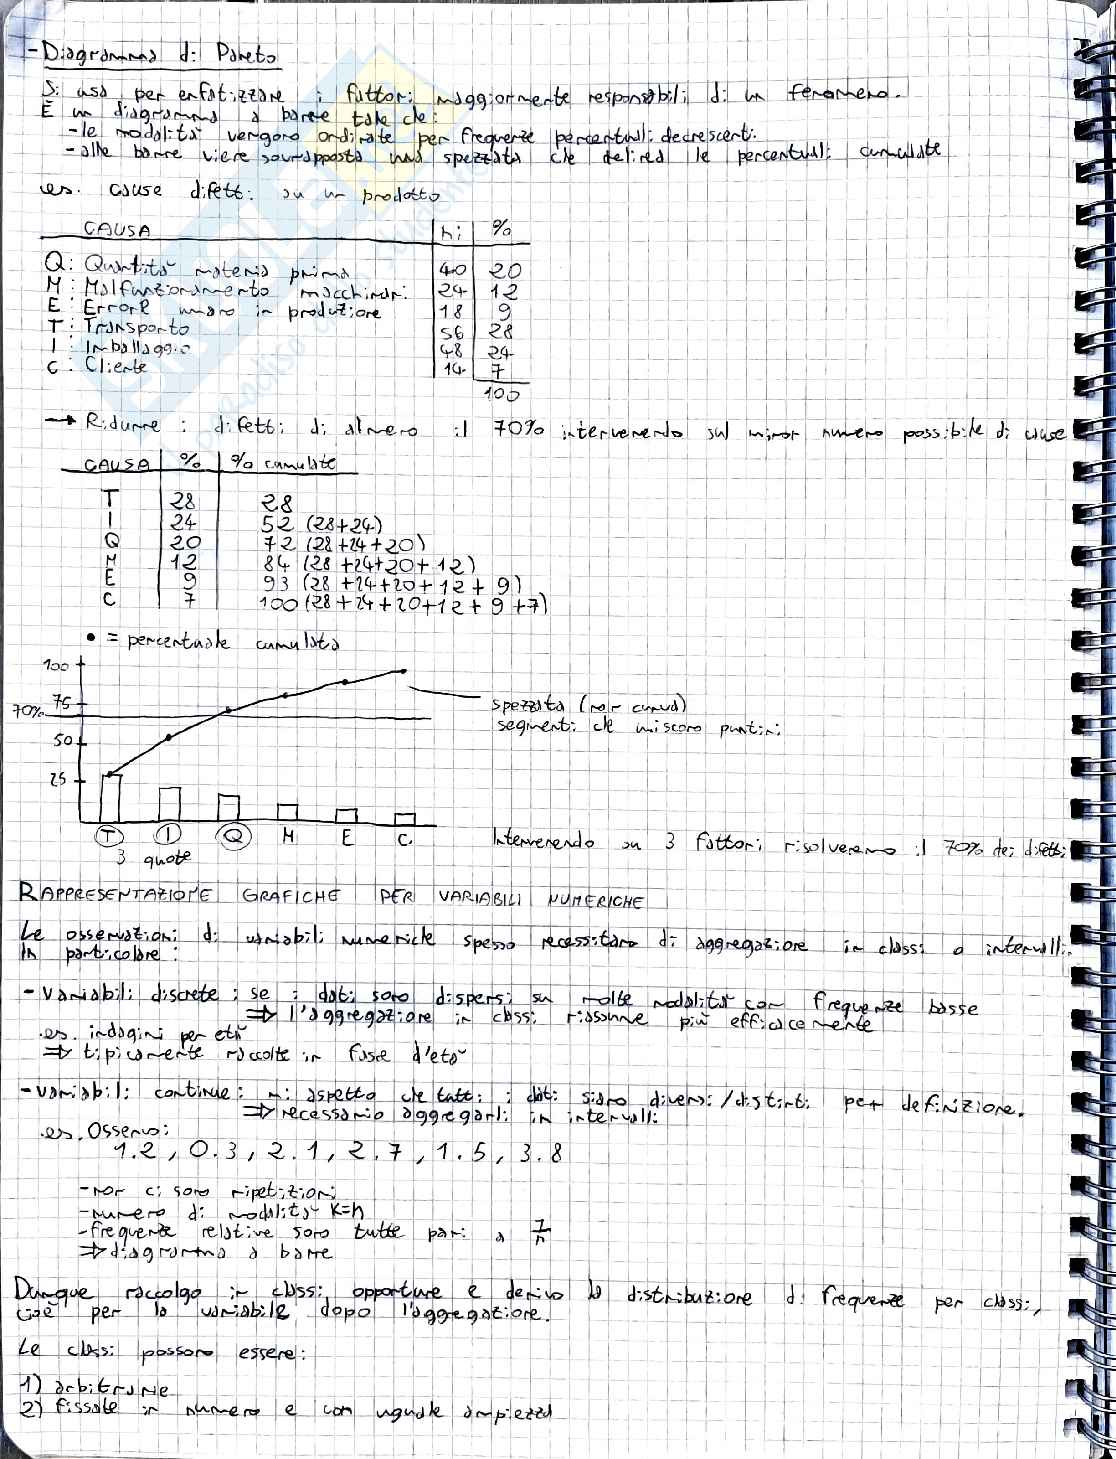 - Diagramma di Pareto
Si usa per enfatizzare i fattori maggiormente responsabili di un fenomeno.
È un diagramma a barre tale che:
-le modalità vengono ordinate per frequenze percentuali decrescenti.
-alle barre viene sovrapposta una spezzata che delinea le percentuali cumulate
es. cause difetti su un prodotto
CAUSA ni %
Q: Quantità materia prima 40 20
M: Malfunzionamento macchinari 24 12
E: Errore umano in produzione 18 9
T: Transporto 56 28
I: Imballaggio 48 24
C: Cliente 14 7
100
→ Ridurre i difetti di almeno il 70% intervenendo sul minor numero possibile di cause
CAUSA % % cumulate
T 28 28
I 24 52 (28+24)
Q 20 72 (28+24+20)
M 12 84 (28+24+20+12)
E 9 93 (28+24+20+12+9)
C 7 100 (28+24+20+12+9+7)
• = percentuale cumulata
100
75
70%
50
25
spezzata (non curva)
segmenti che uniscono puntini
T I Q M E C
3 quote
Intervenendo su 3 fattori risolveremo il 70% dei difetti
RAPPRESENTAZIONE GRAFICHE PER VARIABILI NUMERICHE
Le osservazioni di variabili numeriche spesso necessitano di aggregazione in classi o intervalli.
In particolare:
-variabili discrete: se i dati sono dispersi su molte modalità con frequenze basse
⇒ l'aggregazione in classi riassume più efficacemente
es. indagini per età
⇒ tipicamente raccolte in fasce d'età
-variabili continue: mi aspetto che tutti i dati siano diversi/distinti per definizione.
⇒ necessario aggregarli in intervalli
es. Osservo:
1.2, 0.3, 2.1, 2.7, 1.5, 3.8
-non ci sono ripetizioni
-numero di modalità K=n
-frequenze relative sono tutte pari a 1/n
⇒ diagramma a barre
Dunque raccolgo in classi opportune e derivo la distribuzione di frequenze per classi,
cioè per la variabile dopo l'aggregazione.
Le classi possono essere:
1) arbitrarie
2) fissate in numero e con uguale ampiezza